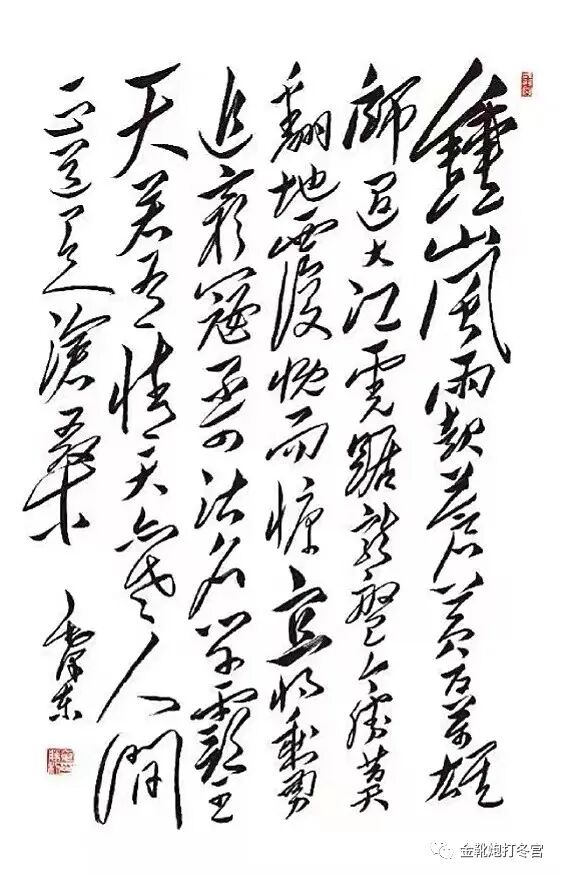 鍾山風雨起蒼黄百萬雄
師過大江虎踞龍盤今勝昔天
翻地覆慨而慷宜將剩勇
追窮寇不可沽名學霸王
天若有情天亦老人間
正道是滄桑
毛澤東
金靴炮打冬宫